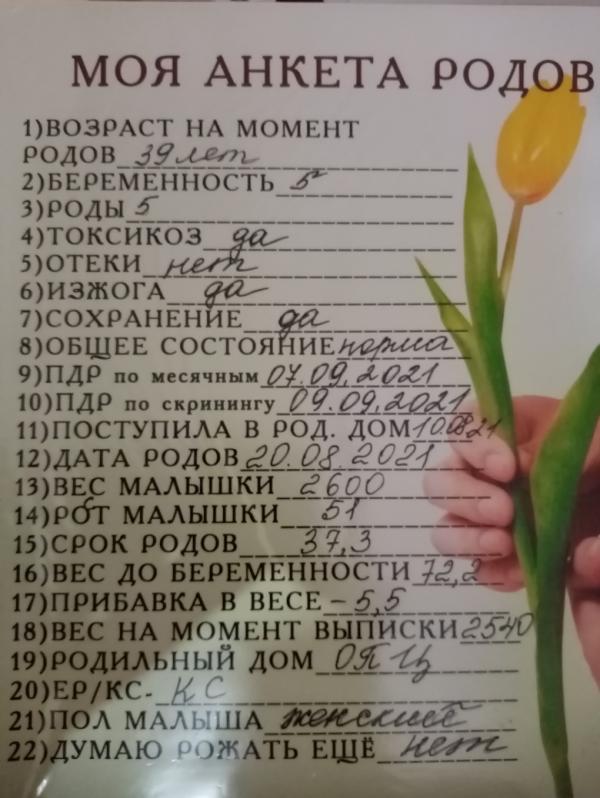 МОЯ АНКЕТА РОДОВ
1)ВОЗРАСТ НА МОМЕНТ
РОДОВ 39 лет
2)БЕРЕМЕННОСТЬ 5
3)РОДЫ 5
4)ТОКСИКОЗ да
5)ОТЕКИ нет
6)ИЗЖОГА да
7)СОХРАНЕНИЕ да
8)ОБЩЕЕ СОСТОЯНИЕ норма
9)ПДР по месячным 07.09.2021
10)ПДР по скринингу 09.09.2021
11)ПОСТУПИЛА В РОД. ДОМ 10.08.21
12)ДАТА РОДОВ 20.08.2021
13)ВЕС МАЛЫШКИ 2600
14)РОТ МАЛЫШКИ 51
15)СРОК РОДОВ 37,3
16)ВЕС ДО БЕРЕМЕННОСТИ 72,2
17)ПРИБАВКА В ВЕСЕ -5,5
18)ВЕС НА МОМЕНТ ВЫПИСКИ 2540
19)РОДИЛЬНЫЙ ДОМ ОПЦ
20)ЕР/КС- КС
21)ПОЛ МАЛЫША женский
22)ДУМАЮ РОЖАТЬ ЕЩЁ нет